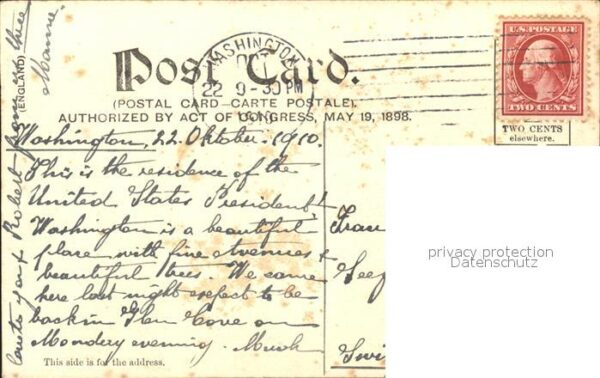 WASHINGTON
OCT
22 9-30 PM
1910
U.S. POSTAGE
TWO CENTS
Post Card.
(POSTAL CARD—CARTE POSTALE).
AUTHORIZED BY ACT OF CONGRESS, MAY 19, 1898.
TWO CENTS
elsewhere.
(ENGLAND)
Washington, 22. Oktober. 1910.
This is the residence of the
United States President!
Washington is a beautiful
place with fine Avenues &
beautiful trees. We came
here last night & expect to be
back in Glen Cove on
Monday evening. Much
love to you & Robert from us three
Frau
Swi
This side is for the address.
privacy protection
Datenschutz